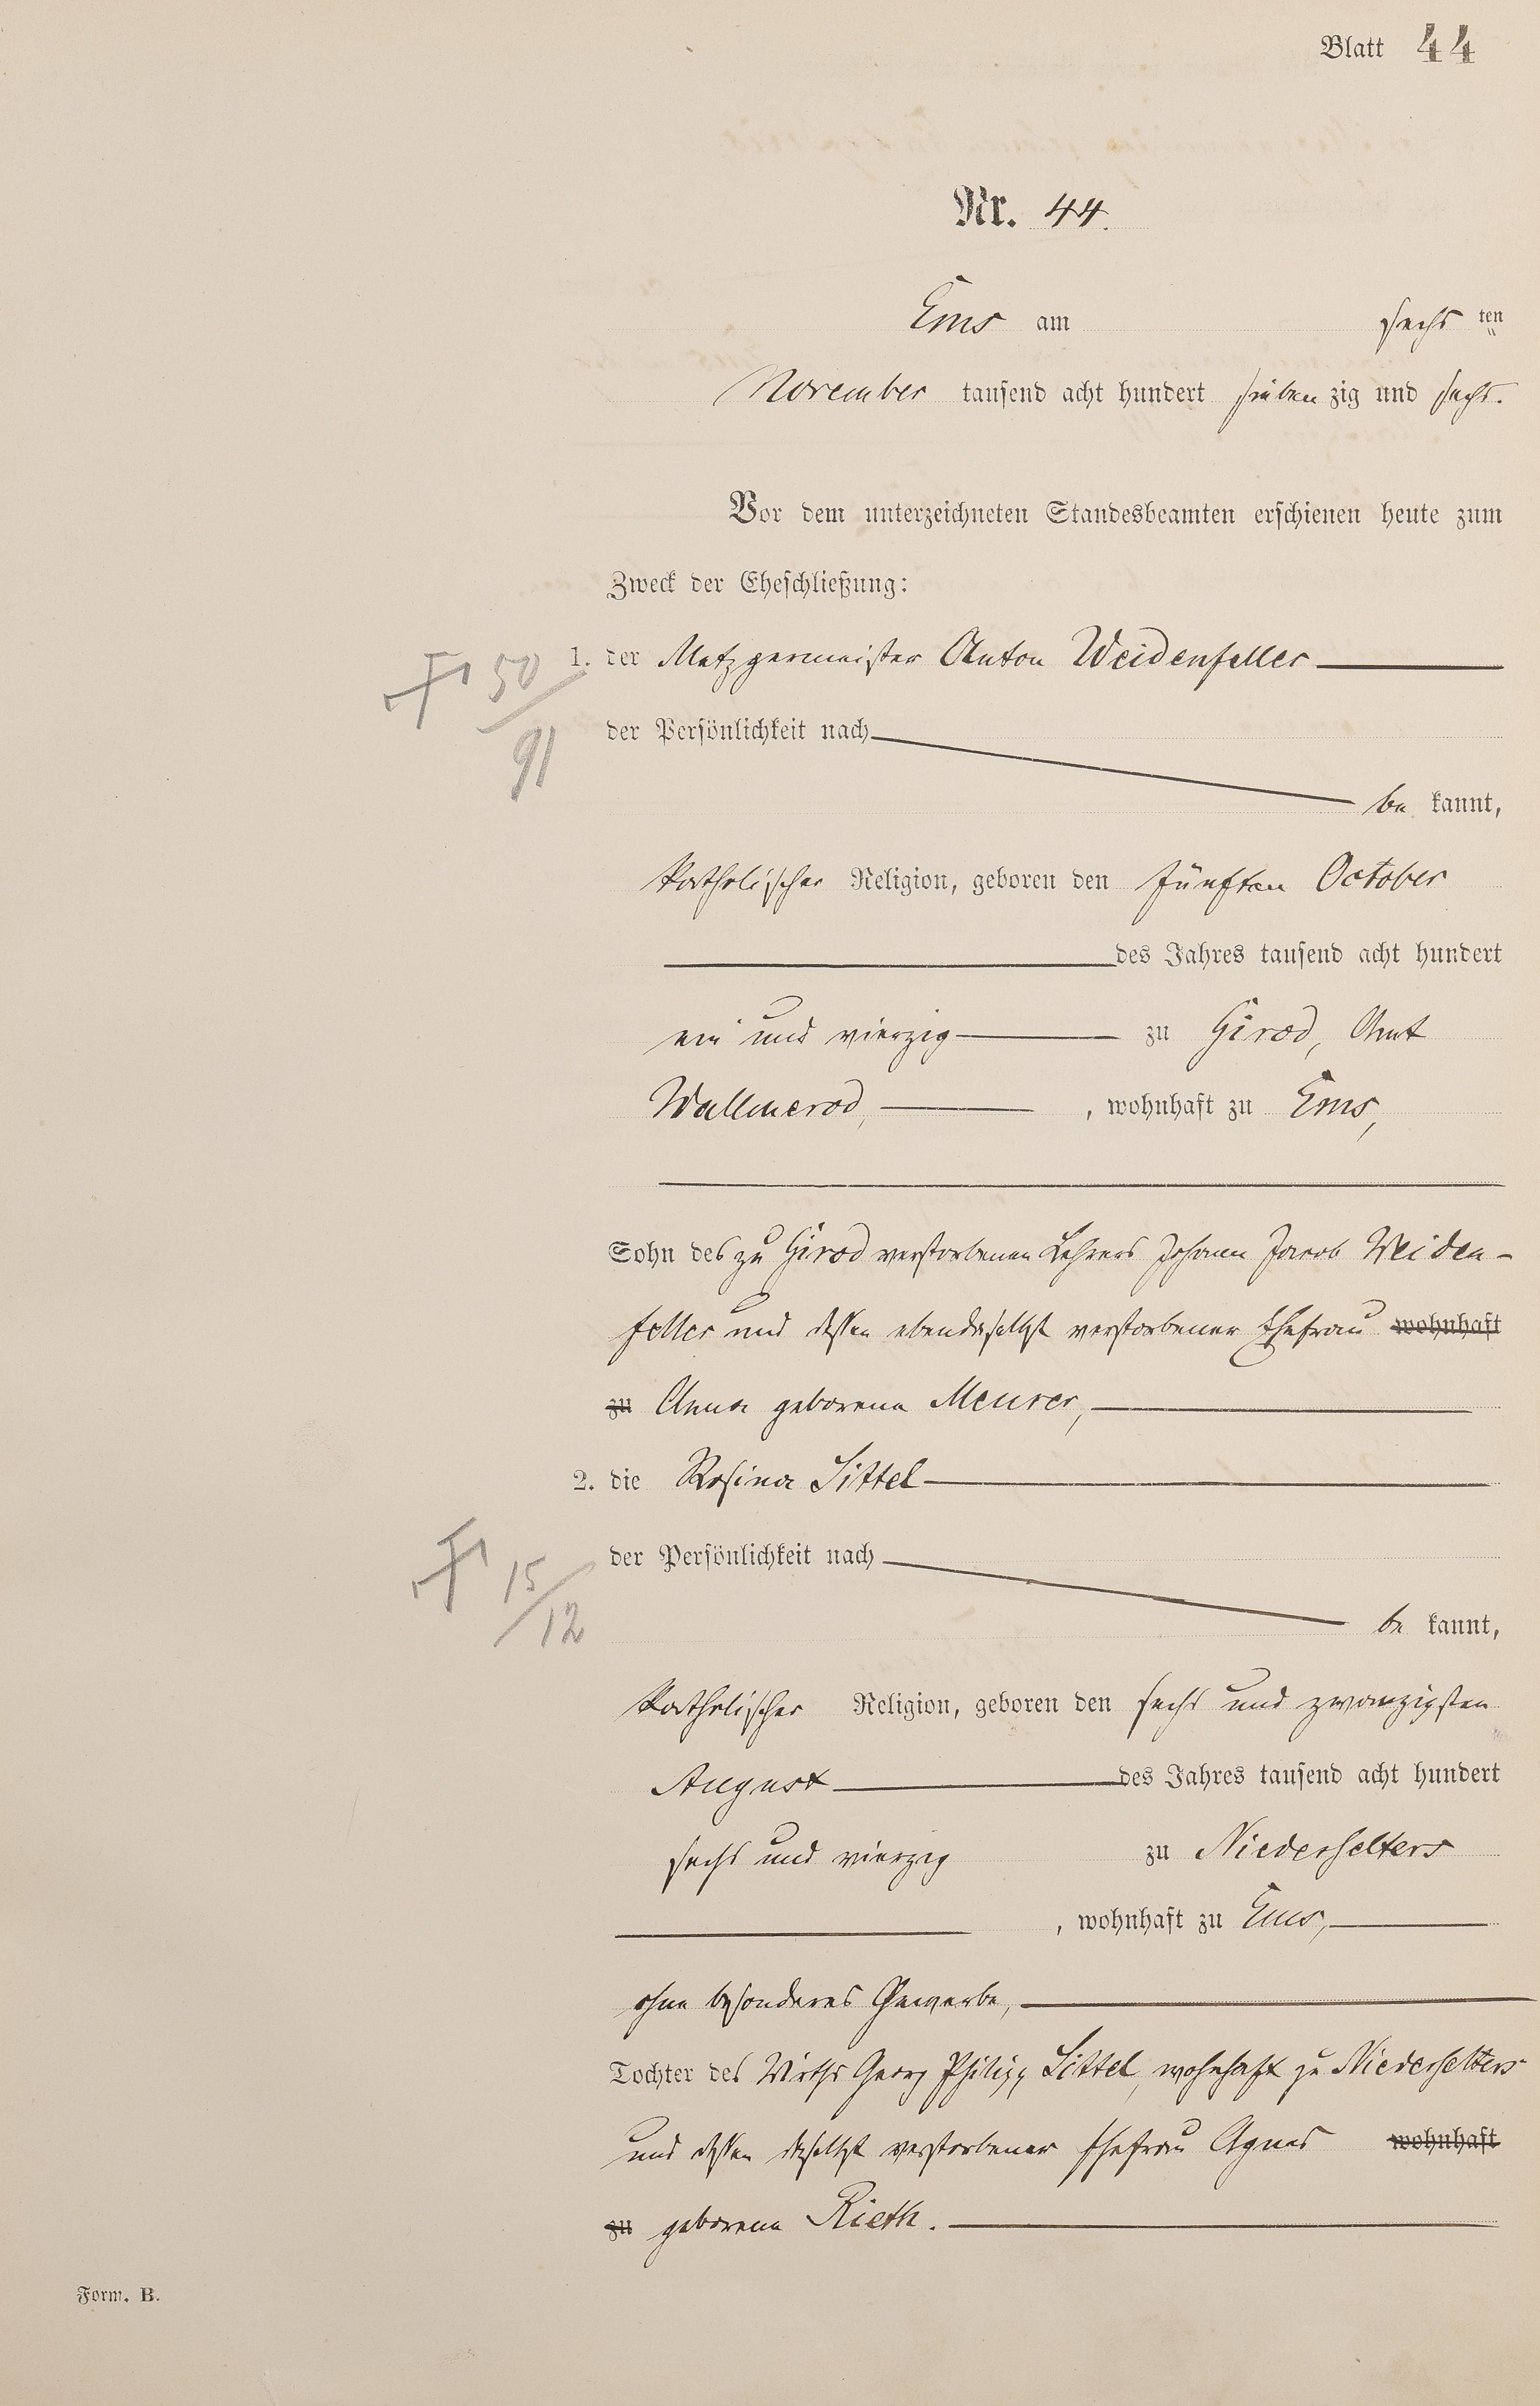 Blatt 44
Nr. 44.
Ems am sechs ten
November tausend acht hundert sieben zig und sechs.
Vor dem unterzeichneten Standesbeamten erschienen heute zum
Zweck der Eheschließung:
1. der Metzgermeister Anton Weidenfeller
† 50/91
der Persönlichkeit nach
be kannt,
katholischer Religion, geboren den fünften October
des Jahres tausend acht hundert
ein und vierzig zu Girod, Amt
Wallmerod, , wohnhaft zu Ems,
Sohn des zu Girod verstorbenen Lehrers Johann Jacob Weiden-
feller und dessen ebendaselbst verstorbener Ehefrau wohnhaft
zu Anna geborene Meurer,
2. die Rosina Sittel
† 15/12
der Persönlichkeit nach
be kannt,
katholischer Religion, geboren den sechs und zwanzigsten
August des Jahres tausend acht hundert
sechs und vierzig zu Niederselters
, wohnhaft zu Ems,
ohne besonderes Gewerbe,
Tochter des Wirths Georg Philipp Sittel, wohnhaft zu Niederselters
und dessen daselbst verstorbener Ehefrau Agnes wohnhaft
zu geborene Rieth.
Form. B.